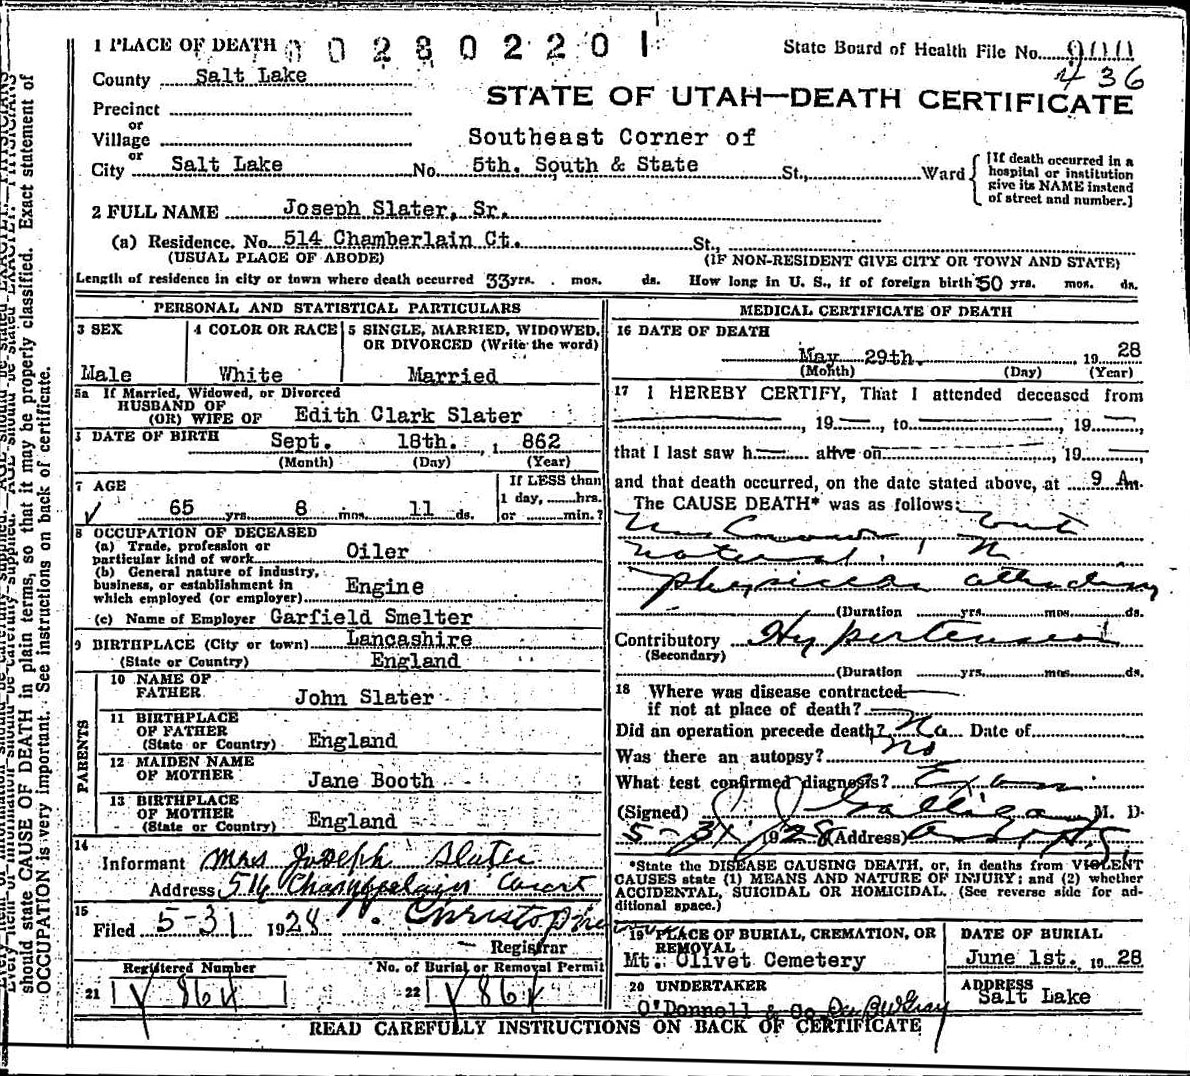 1 PLACE OF DEATH 002802201
State Board of Health File No.
436
County Salt Lake
STATE OF UTAH—DEATH CERTIFICATE
Precinct
or
Village
Southeast Corner of
or
City Salt Lake No. 5th. South & State St., Ward
[If death occurred in a
hospital or institution
give its NAME instead
of street and number.]
2 FULL NAME Joseph Slater, Sr.
(a) Residence. No. 514 Chamberlain Ct. St.,
(USUAL PLACE OF ABODE) (IF NON-RESIDENT GIVE CITY OR TOWN AND STATE)
Length of residence in city or town where death occurred 33 yrs. mos. ds. How long in U. S., if of foreign birth 50 yrs. mos. ds.
PERSONAL AND STATISTICAL PARTICULARS
3 SEX
Male
4 COLOR OR RACE
White
5 SINGLE, MARRIED, WIDOWED,
OR DIVORCED (Write the word)
Married
5a If Married, Widowed, or Divorced
HUSBAND OF
(OR) WIFE OF Edith Clark Slater
DATE OF BIRTH Sept. 18th., 1862
(Month) (Day) (Year)
7 AGE
65 yrs. 8 mos. 11 ds.
If LESS than
1 day, hrs.
or min.?
8 OCCUPATION OF DECEASED
(a) Trade, profession or
particular kind of work Oiler
(b) General nature of industry,
business, or establishment in
which employed (or employer) Engine
(c) Name of Employer Garfield Smelter
9 BIRTHPLACE (City or town) Lancashire
(State or Country) England
PARENTS
10 NAME OF
FATHER John Slater
11 BIRTHPLACE
OF FATHER
(State or Country) England
12 MAIDEN NAME
OF MOTHER Jane Booth
13 BIRTHPLACE
OF MOTHER
(State or Country) England
14
Informant Mrs Joseph Slater
Address 514 Court
15
Filed 5-31 1928
Registrar
Registered Number
21 864
No. of Burial or Removal Permit
22 864
MEDICAL CERTIFICATE OF DEATH
16 DATE OF DEATH
May 29th. 1928
(Month) (Day) (Year)
17 I HEREBY CERTIFY, That I attended deceased from
, 19 , to , 19 ,
that I last saw h alive on , 19 ,
and that death occurred, on the date stated above, at 9 Am.
The CAUSE DEATH* was as follows:
Unknown but
natural. No
physician attending
(Duration yrs. mos. ds.
Contributory Hypertension
(Secondary)
(Duration yrs. mos. ds.
18 Where was disease contracted
if not at place of death?
Did an operation precede death? No Date of
Was there an autopsy? No
What test confirmed diagnosis?
(Signed) M. D.
5-31 1928 (Address)
*State the DISEASE CAUSING DEATH, or, in deaths from VIOLENT
CAUSES state (1) MEANS AND NATURE OF INJURY; and (2) whether
ACCIDENTAL, SUICIDAL OR HOMICIDAL. (See reverse side for ad-
ditional space.)
19 PLACE OF BURIAL, CREMATION, OR
REMOVAL
Mt. Olivet Cemetery
DATE OF BURIAL
June 1st. 1928
20 UNDERTAKER
O'Donnell & Co
ADDRESS
Salt Lake
READ CAREFULLY INSTRUCTIONS ON BACK OF CERTIFICATE
should state CAUSE OF DEATH in plain terms, so that it may be properly classified. Exact statement of
OCCUPATION is very important. See instructions on back of certificate.